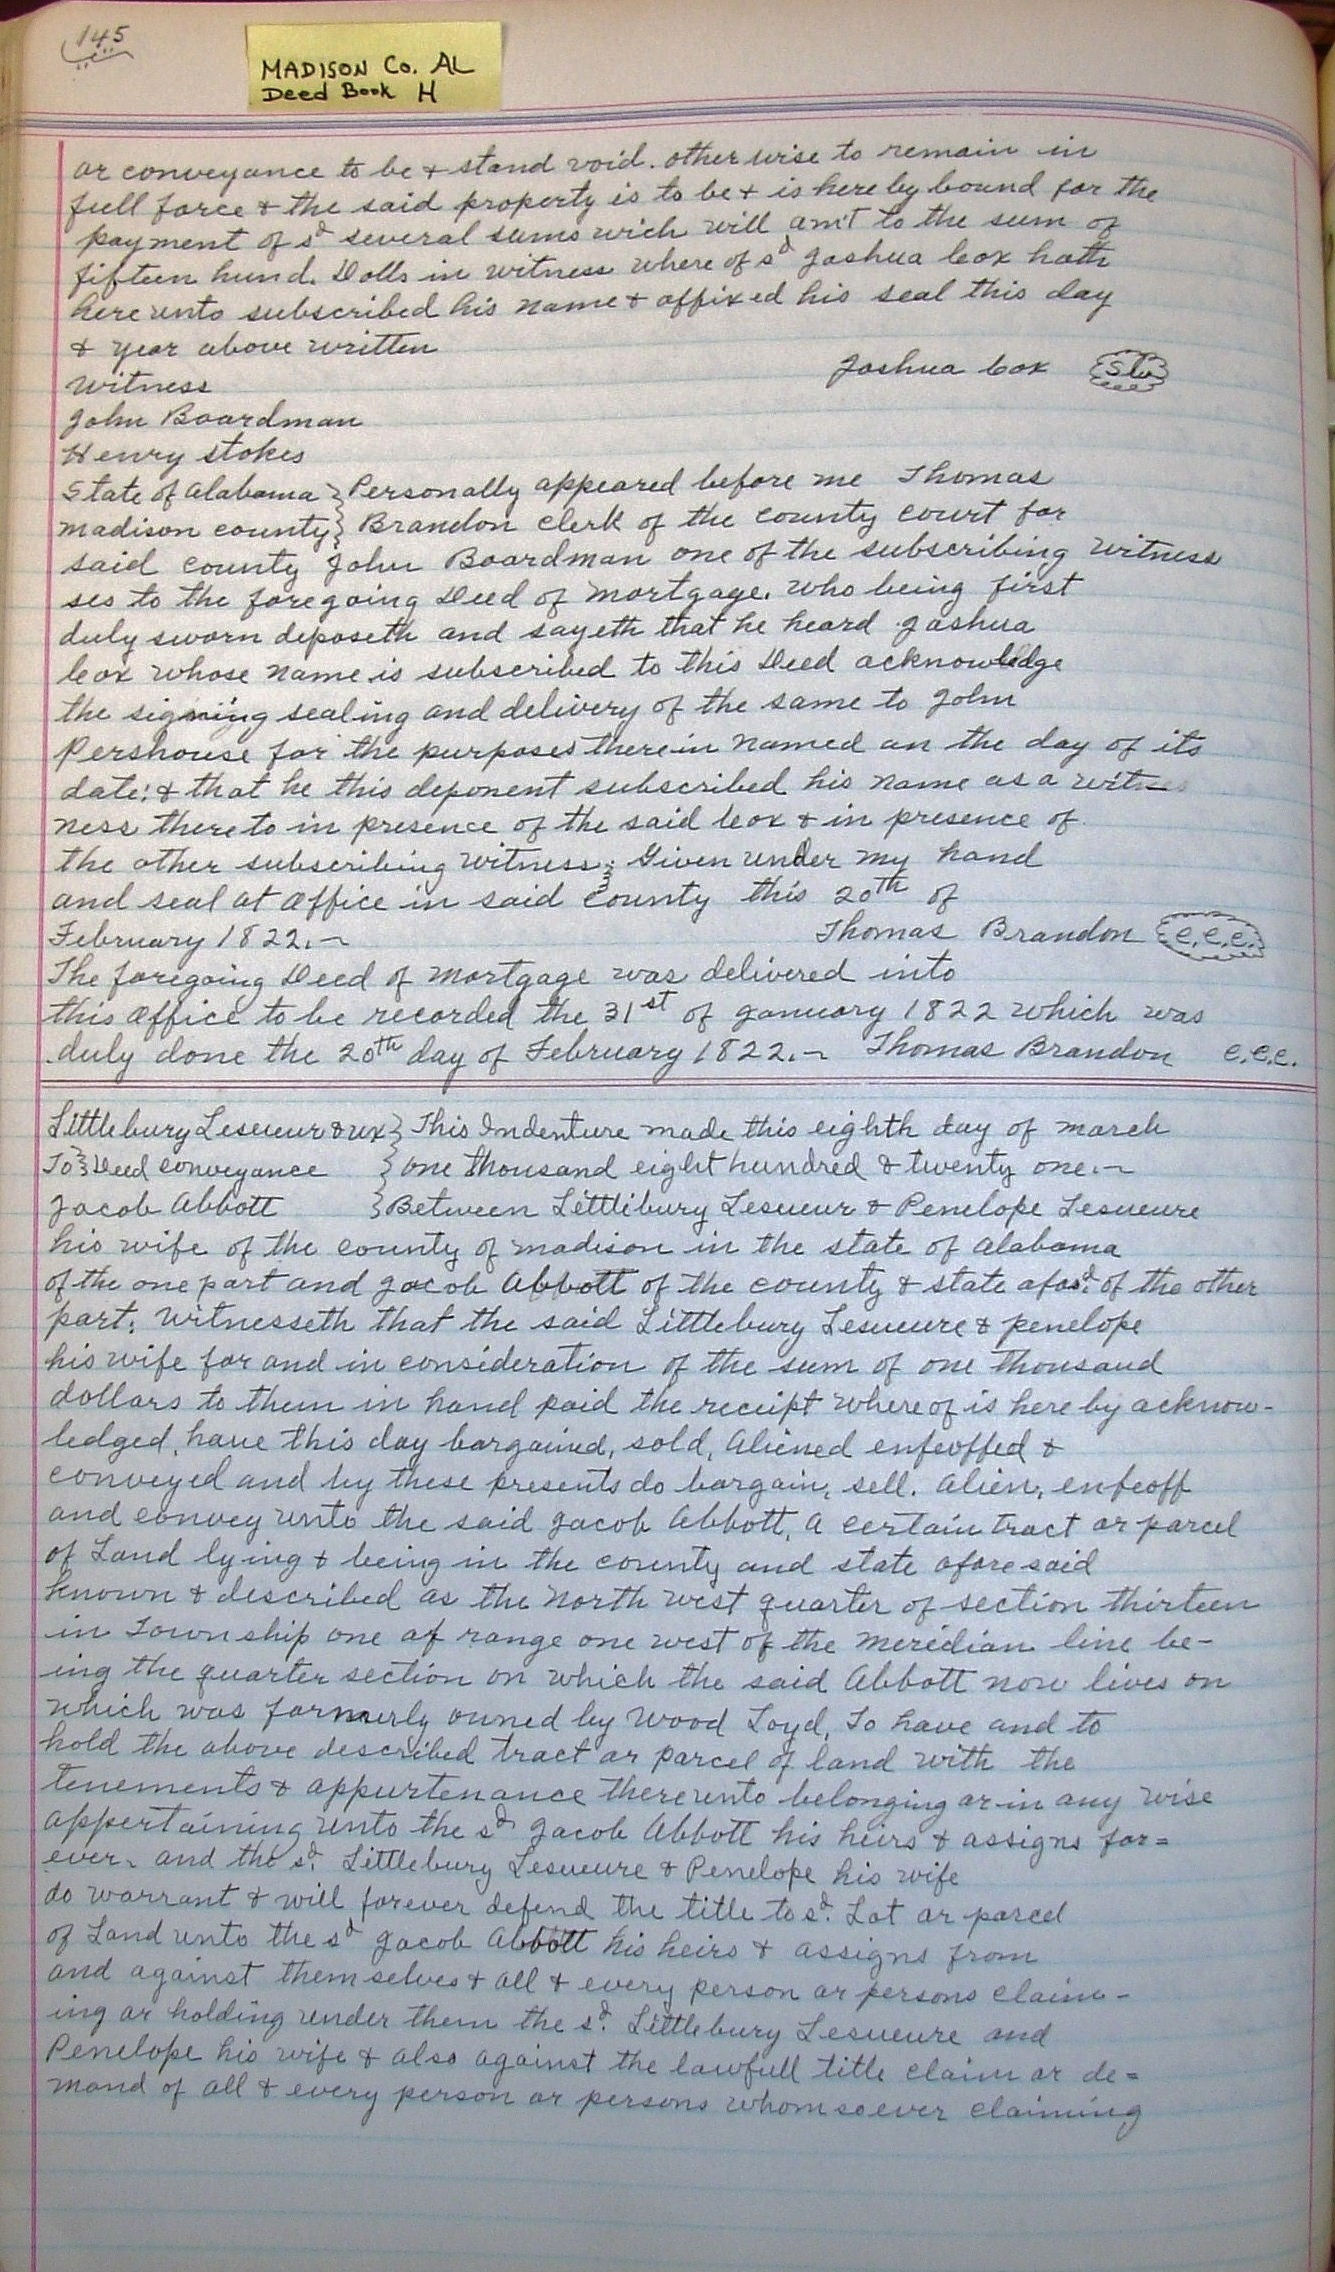 145
MADISON Co. AL
Deed Book H
or conveyance to be & stand void. other wise to remain in
full force & the said property is to be & is here by bound for the
payment of sd several sums wich will am't to the sum of
fifteen hund. Dolls in witness where of sd Joshua Cox hath
here unto subscribed his name & affixed his seal this day
& year above written
Joshua Cox
Witness
John Boardman
Henry Stokes
State of Alabama } Personally appeared before me Thomas
Madison county } Brandon clerk of the county court for
said county John Boardman one of the subscribing witness
ses to the foregoing Deed of Mortgage. who being first
duly sworn deposeth and sayeth that he heard Joshua
Cox whose name is subscribed to this Deed acknowledge
the signing sealing and delivery of the same to John
Pershouse for the purposes therein named on the day of its
date: & that he this deponent subscribed his name as a witnes
ness thereto in presence of the said Cox & in presence of
the other subscribing witness; Given under my hand
and seal at office in said county this 20th of
February 1822.~ Thomas Brandon C.C.C.
The foregoing Deed of Mortgage was delivered into
this office to be recorded the 31st of January 1822 which was
duly done the 20th day of February 1822.~ Thomas Brandon C.C.C.
Littlebury Lesueur & ux } This Indenture made this eighth day of march
To } Deed conveyance } one thousand eight hundred & twenty one.~
Jacob Abbott } Between Littlibury Lesueur & Penelope Lesueure
his wife of the county of Madison in the state of Alabama
of the one part and Jacob Abbott of the county & state afosd. of the other
part: Witnesseth that the said Littlebury Lesueure & penelope
his wife for and in consideration of the sum of one thousand
dollars to them in hand paid the receipt where of is here by acknow-
ledged, have this day bargained, sold, Aliened enfeoffed &
conveyed and by these presents do bargain, sell. alien, enfeoff
and convey unto the said Jacob Abbott, a certain tract or parcel
of Land lying & being in the county and state afore said
known & described as the North west quarter of section thirteen
in Town ship one of range one west of the meridian line be-
ing the quarter section on which the said Abbott now lives on
which was formerly owned by Wood Loyd, To have and to
hold the above described tract or parcel of land with the
tenements & appurtenance there unto belonging or in any wise
appertaining unto the sd Jacob Abbott his heirs & assigns for=
ever. and the sd. Littlebury Lesueure & Penelope his wife
do warrant & will forever defend the title to sd. Lot or parcel
of Land unto the sd Jacob Abbott his heirs & assigns from
and against them selves & all & every person or persons claim-
ing or holding under them the sd. Littlebury Lesueure and
Penelope his wife & also against the lawfull title claim or de=
mand of all & every person or persons whom so ever claiming